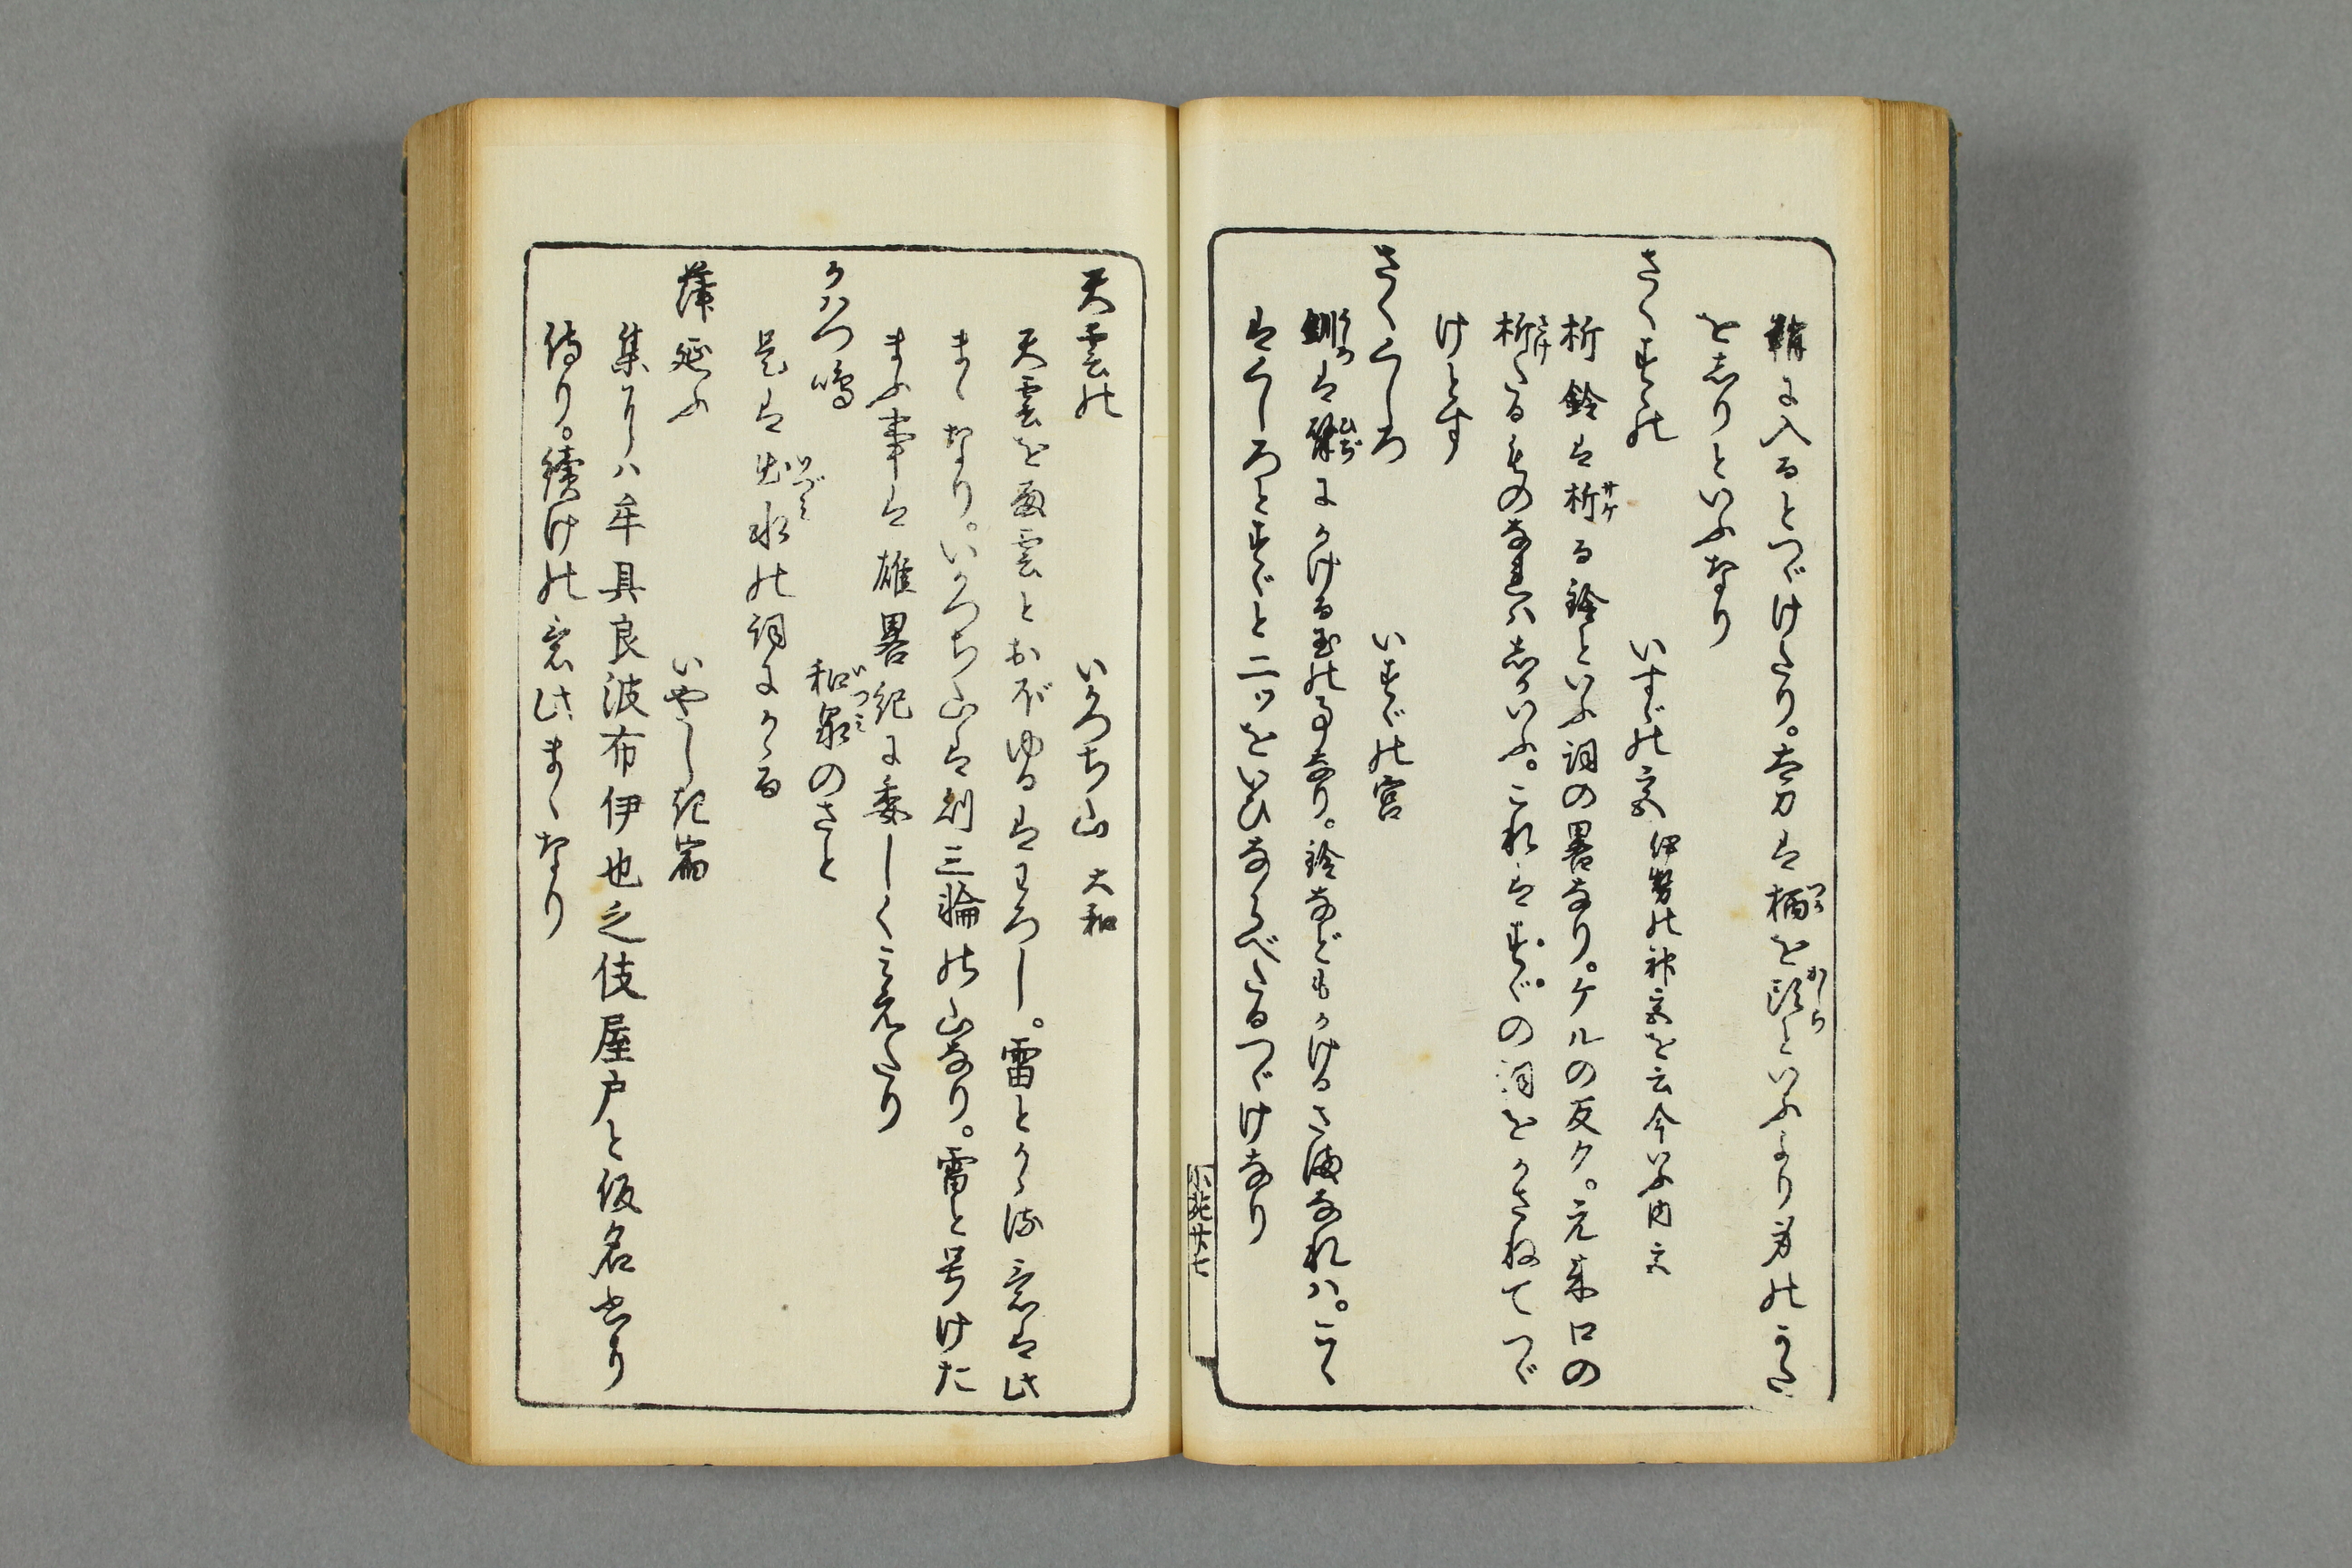 鞘に入るとつゞけたり。壱刀は柄を頭といふより身のかた
を志りといふなり
さくすゞの　いすゞの宮 伊勢の神宮を云今いふ内宮
析鈴は析る鈴といふ詞の畧なり。ケルの反ク。元来口の
析たるものなれハ志かいふ。これはすゞの詞をかさねてつゞ
けとす
さくくしろ　いすゞの宮
釧は臂にかける玉の事なり。鈴などもかけるさまなれハ。こゝ
はくしろとすゞと二ッをいひならべたるつゞけなり
天雲の　いかつち山 大和
天雲を雨雲とおぼゆるはわろし。雷とかゝる意は此
まゝなり。いかつち山は則三輪の山なり。雷と号けた
まふ事は雄畧紀に委しくミえたり
かハつ鳴　和泉のさと
是は出水の詞にかゝる
薦延ふ　いやしき宿
集にハ牟具良波布伊也之伎屋戸と仮名書り
侍り。續けの意此まゝなり